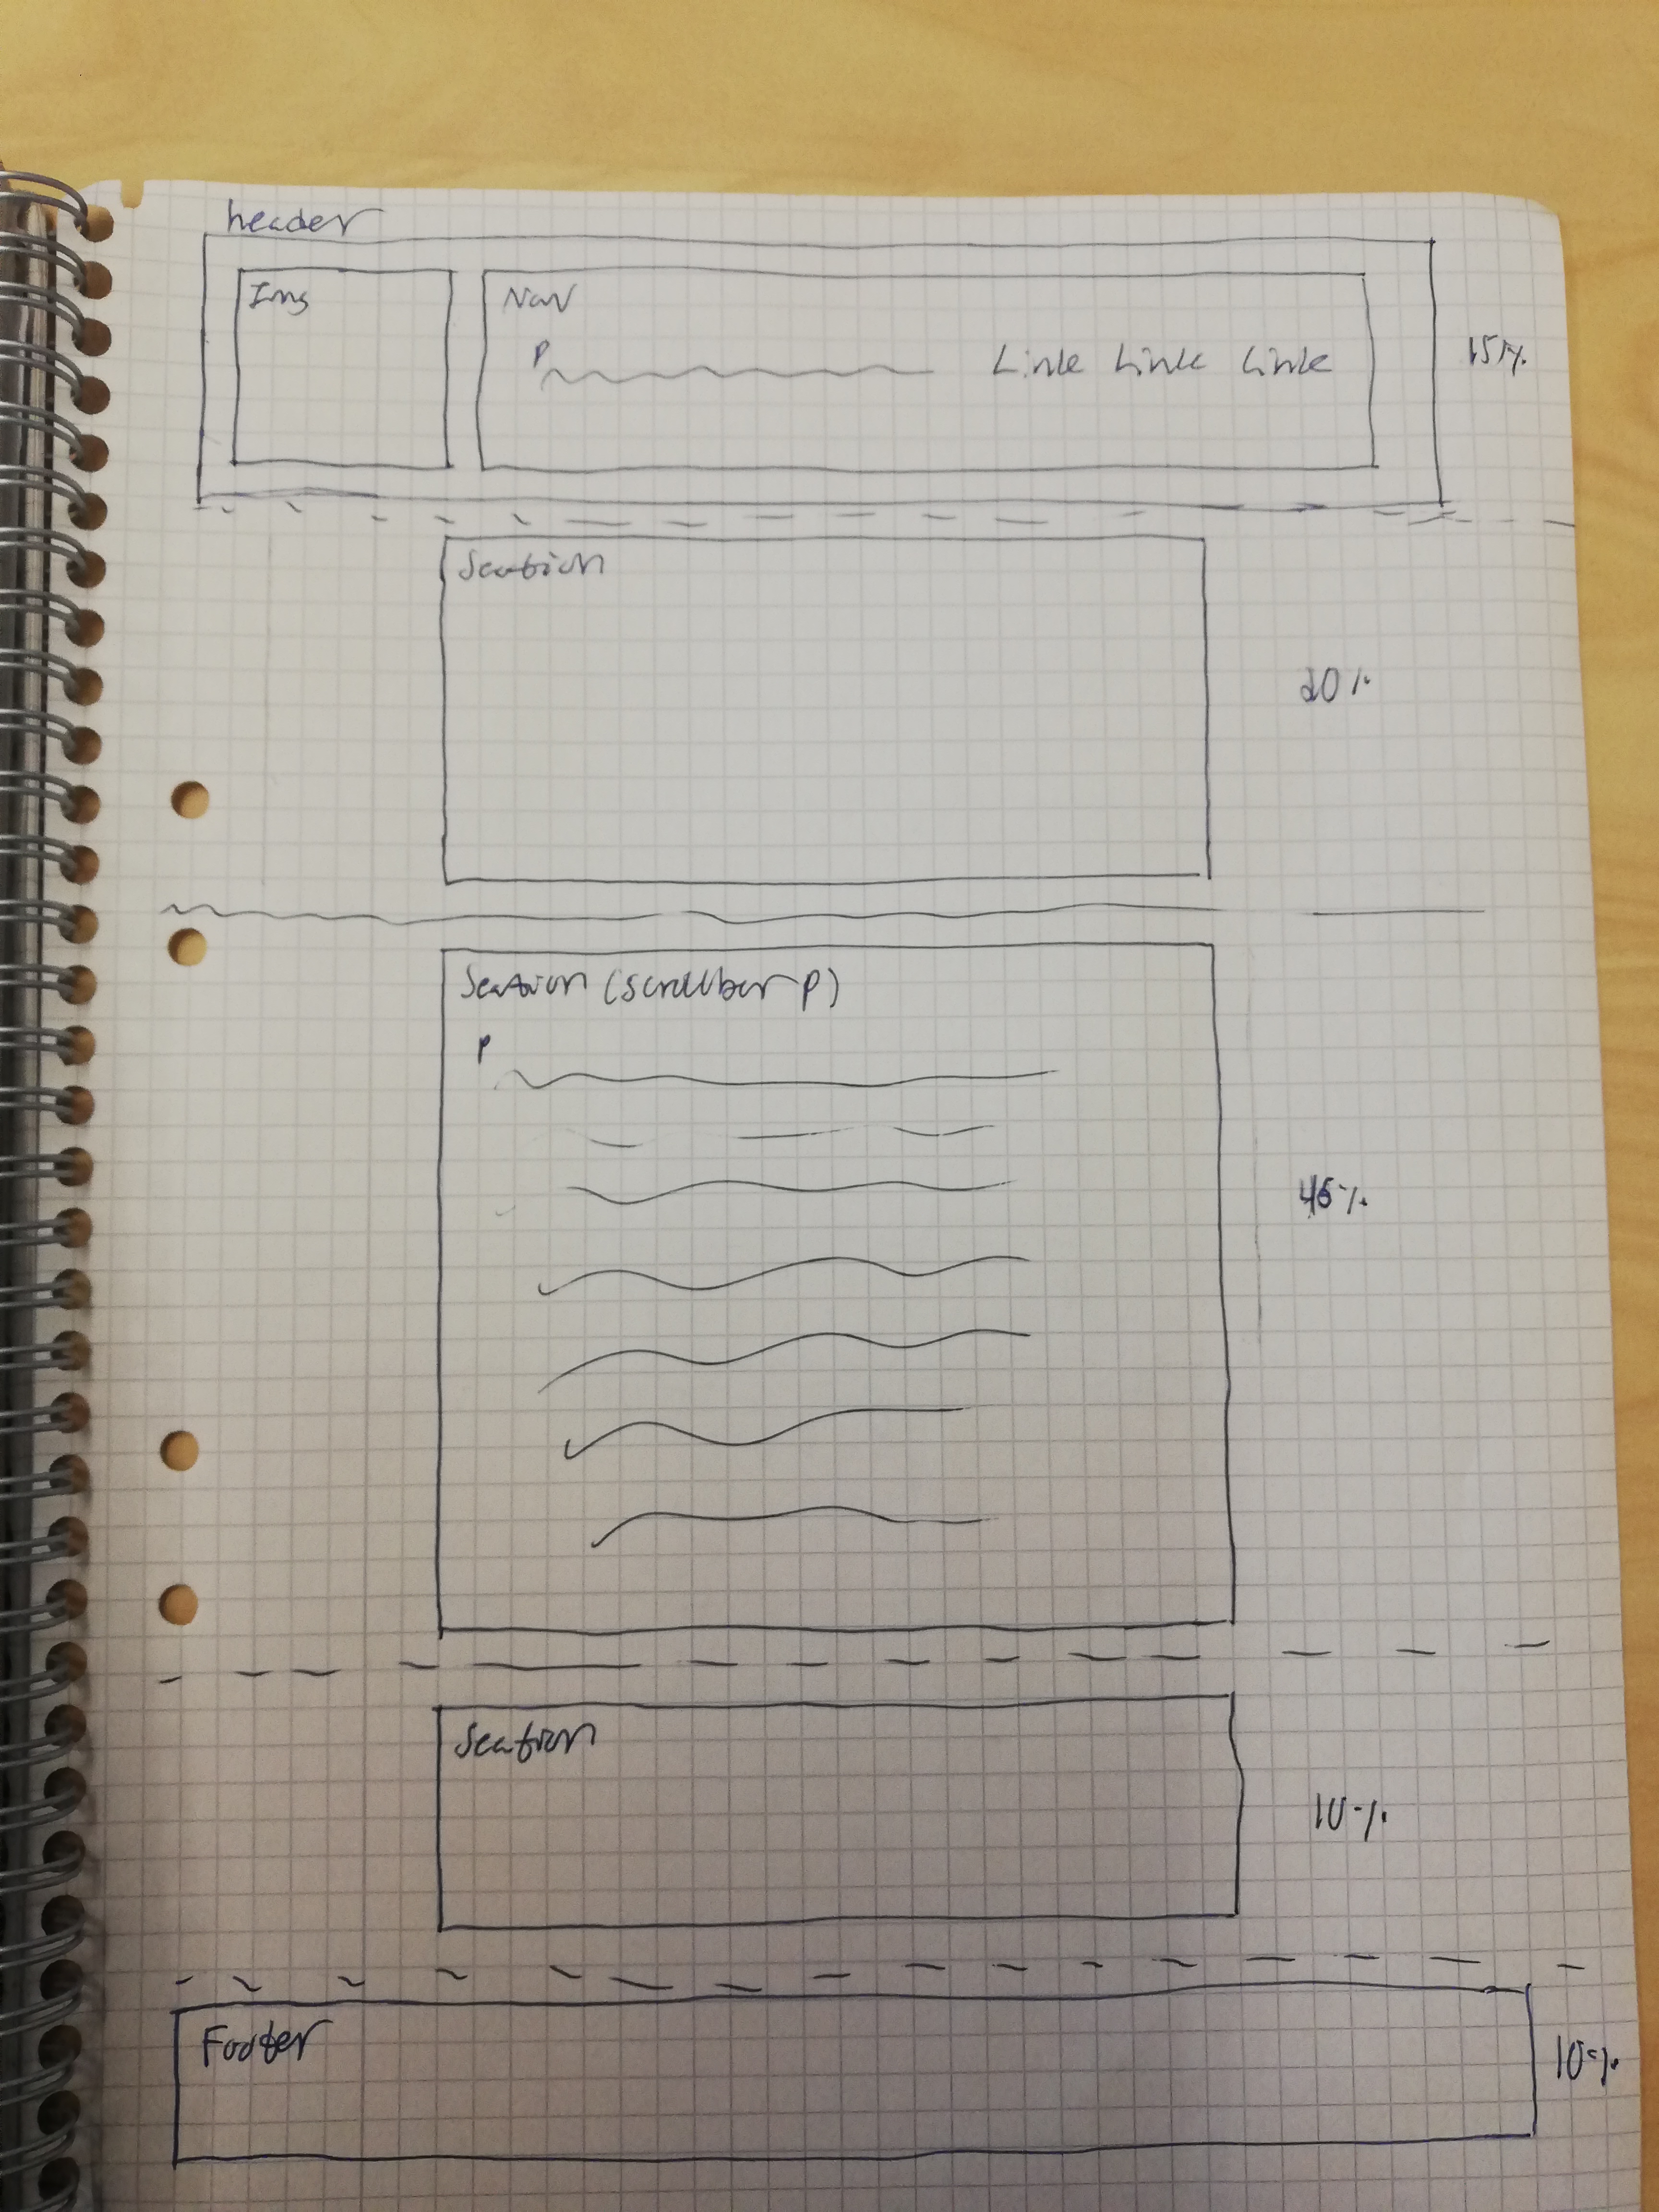 header
Img
Nav
p
Link Link Link
15%
Section
20%
Section (scrollbar p)
p
45%
Section
10%
Footer
10%